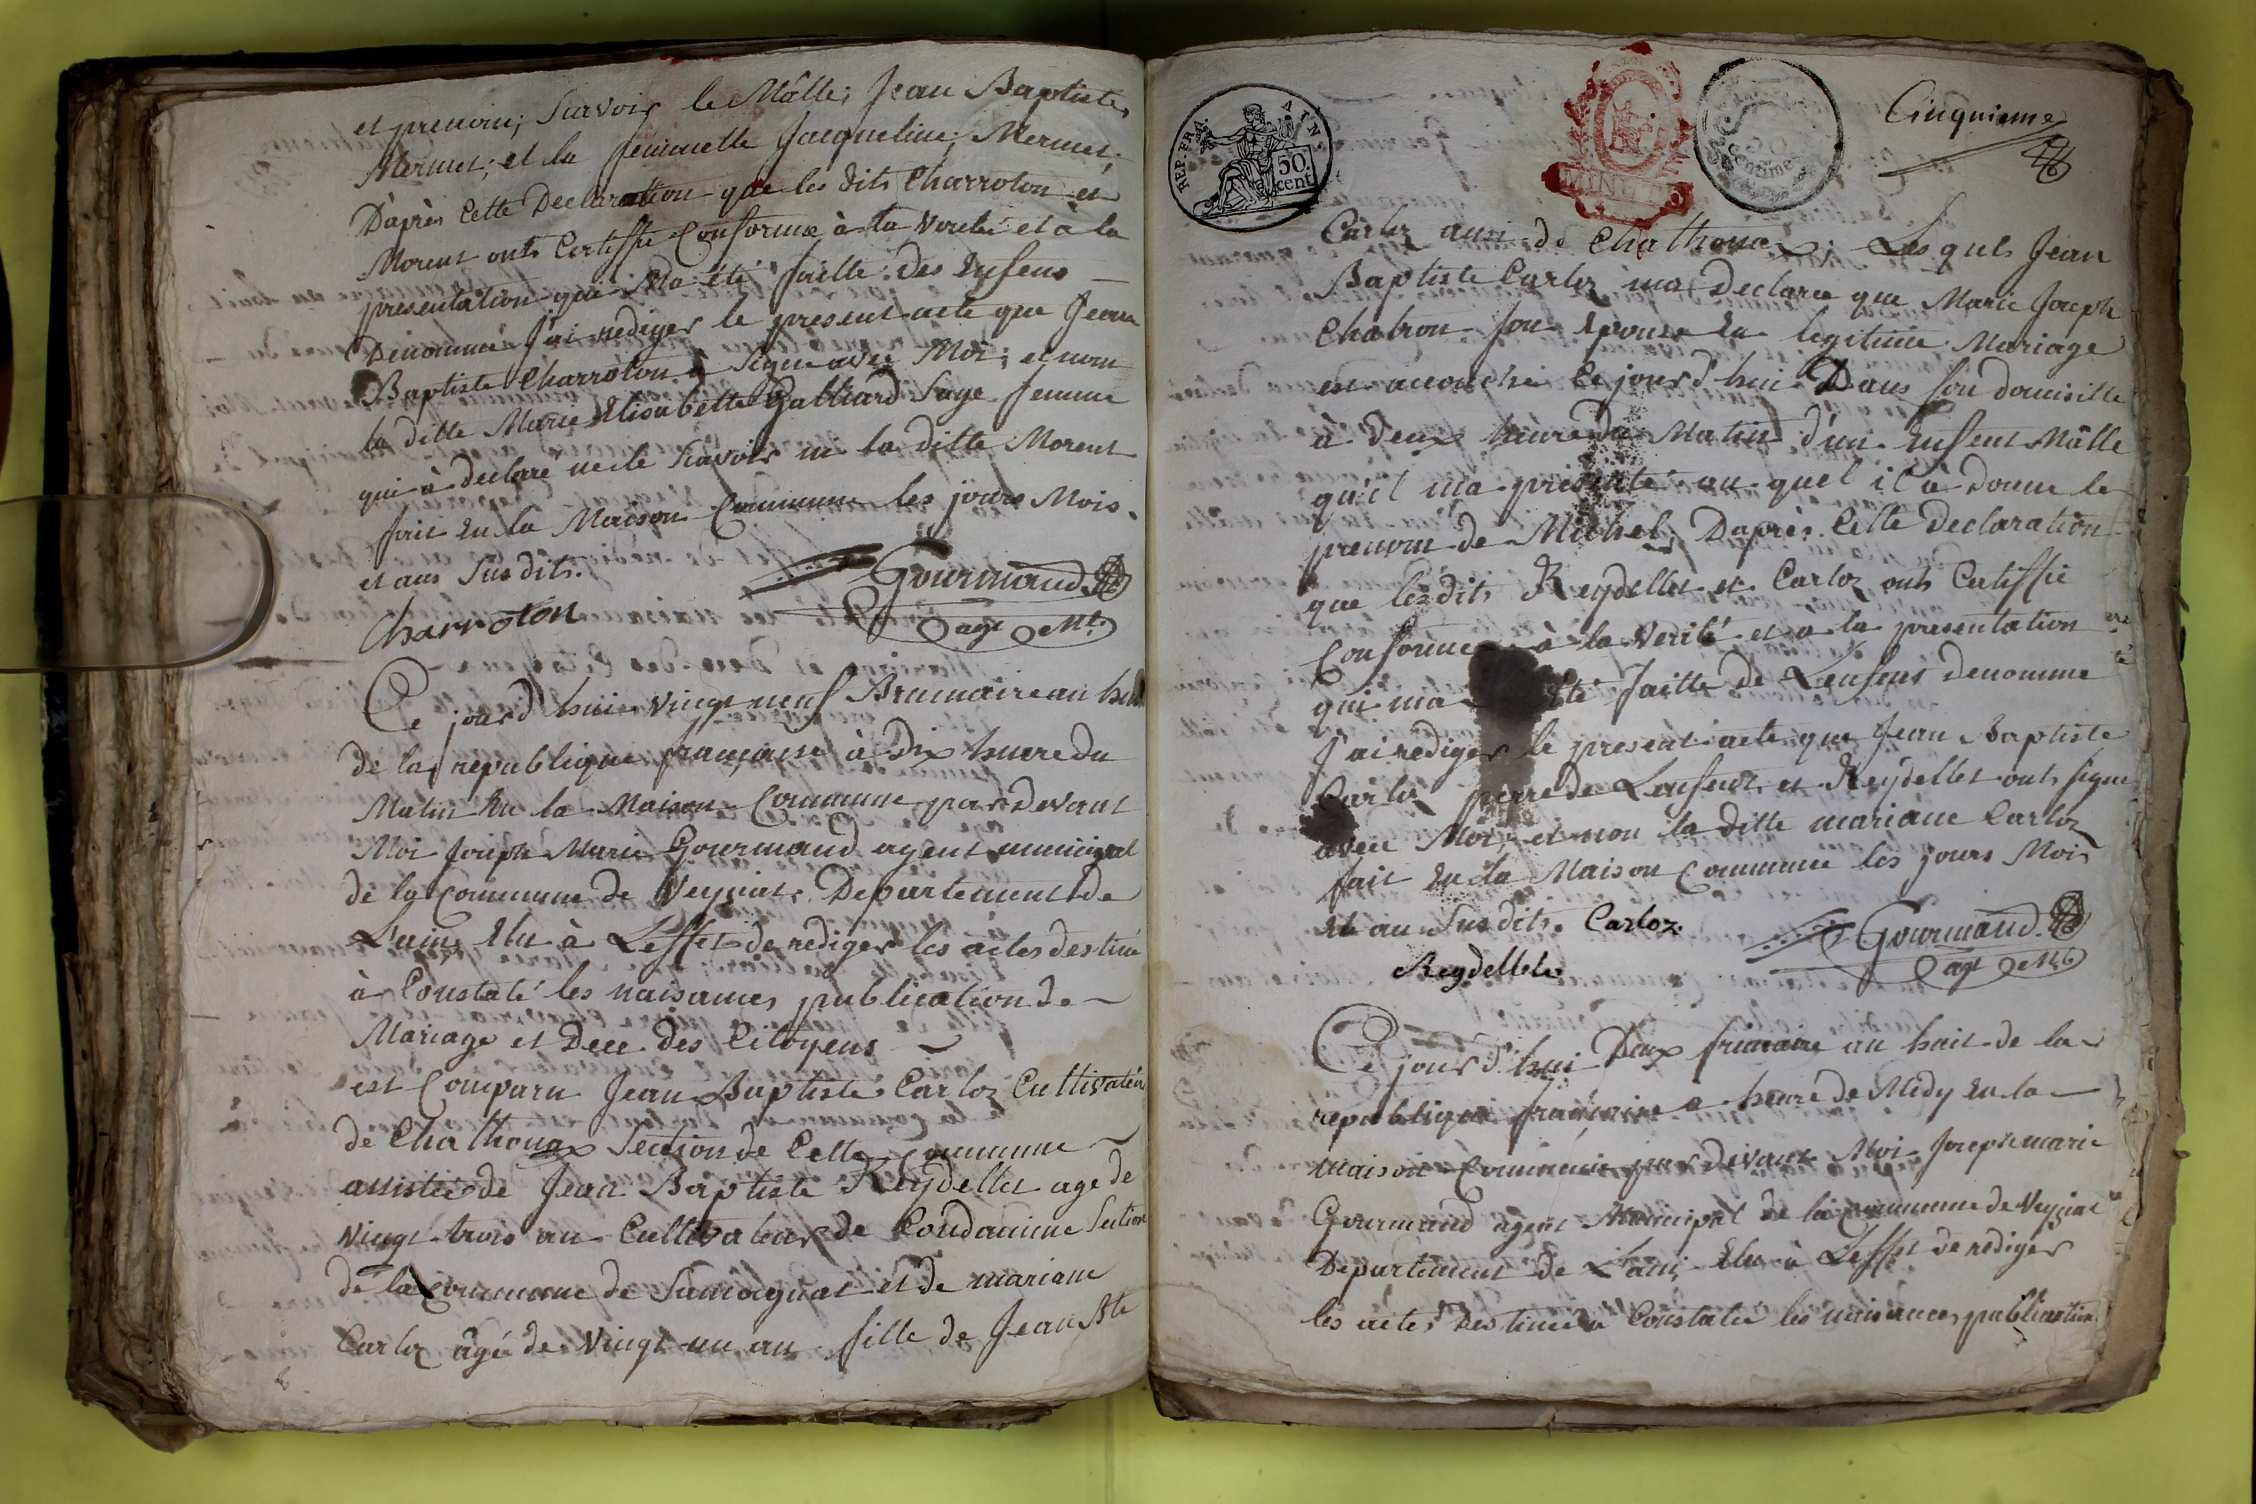 et prenom; Savoir le Mâlle; Jean Baptiste
Mermet; et la femmelle Jacqueline; Mermet.
D'après Cette Declaration que les dits Charroton et
Morent onts Certiffié Conforme à la Verité et à la
presentation qui Ma été faitte des Enfens
Dénommé J'ai rediger le present acte que Jean
Baptiste Charroton à Signé avec Moi; et nom
la ditte Marie Elisabette Galliard Sage femme
qui à declaré ne le Savoir ni la ditte Morent
fait En la Maison Commune les jours Mois
et ans Susdits.
Gourmand
Charroton
agt Mt.
Ce jourd'huit vingt neuf Brumaire an huit
de la republique française à Dix heure du
Matin En la Maison Commune pardevant
Moi Joseph Marie Gourmand agent municipal
de la Commune de Veyziat Departement de
L'ain, Elu à L'effet de rediger les actes destiné
à Constaté les naisances publication de
Mariage et Décé des Citoyens
est Comparu Jean Baptiste Carloz Cultivateur
de Chathonax Section de Cette Commune
assistée de Jean Baptiste Reydellet age de
Vingt trois an Cultivateur de Condamine Section
de la Commune de Samognat et de mariane
Carloz âgé de Vingt un an fille de Jean Bte
REP. FRA.
50 cent
centime
Cinquieme
Carloz aussi de Chathonax; Les quels Jean
Baptiste Carloz ma Declaré que Marie Joseph
Chatron Son Epouse En legitime Mariage
est accouché Ce jourd'hui Dans son domicille
à deux heure du Matin d'un Enfent Mâlle
qu'il ma presenté au quel il à donné le
prenom de Michel, D'après Cette declaration
que lesdits Reydellet et Carloz onts Certiffié
Conforme à la Verité et a la presentation
qui ma été faitte de L'enfens denommé
J'ai rediger le present acte que Jean Baptiste
Carloz perre de L'enfent et Reydellet onts signé
avec Moi, et non la ditte mariane Carloz
fait En la Maison Commune les jours Mois
Et an Susdits. Carloz.
Gourmand
Reydellet
agt Mt
Ce jourd'hui Deux frimaire an huit de la
republique française a heure de Midy En la
maison Commune pardevant Moi Joseph marie
Gourmand agent Municipal de la Commune de Veyziat
Departement de L'ain, Elu à L'effet de rediger
les actes destinée à Constaté les naisances, publication